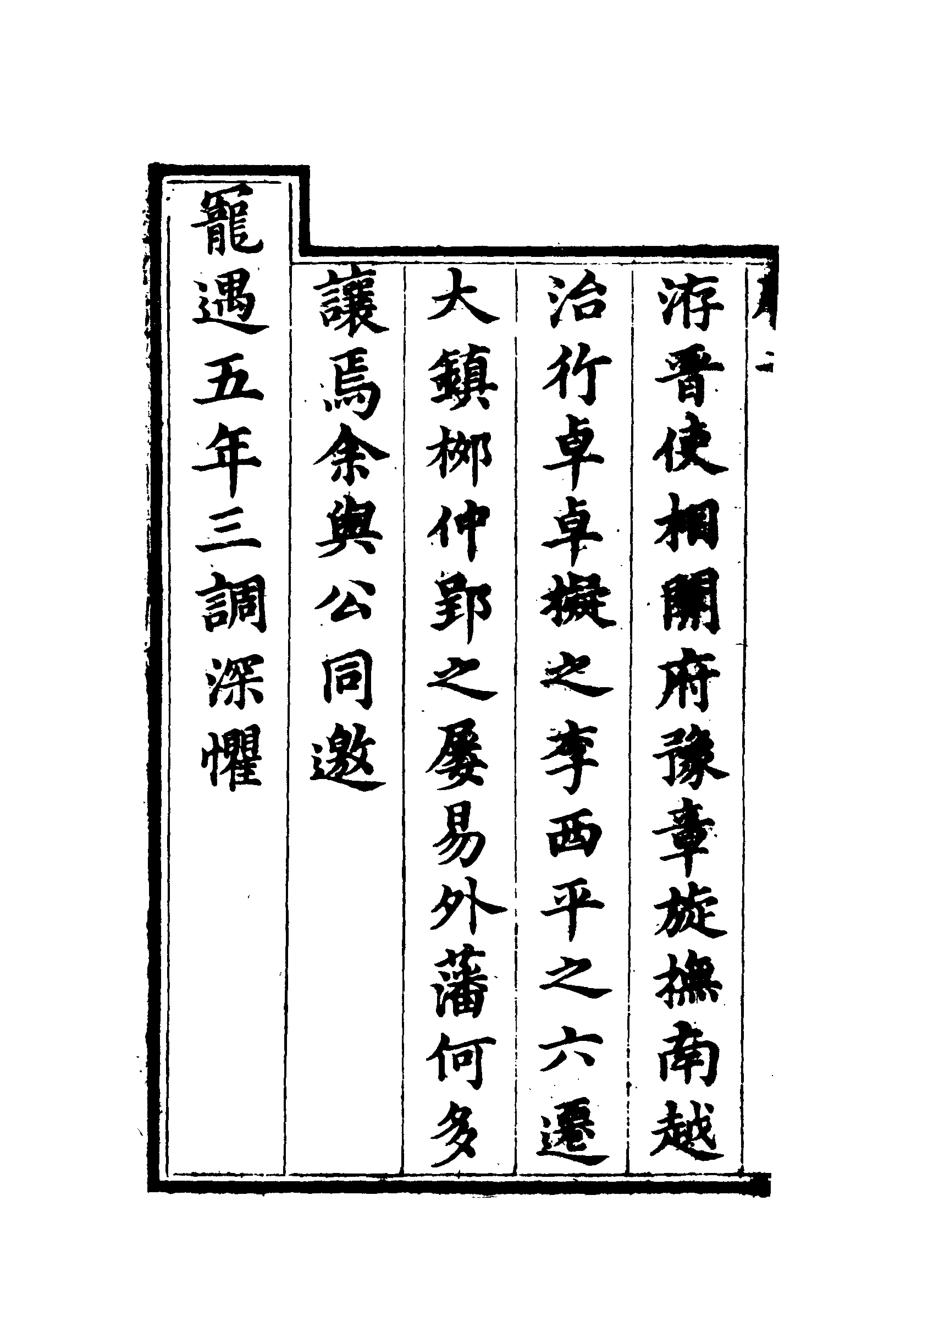 洊晋使相開府豫章旋撫南越
治行卓卓擬之李西平之六遷
大鎮栁仲郢之屡易外藩何多
讓焉余與公同邀
寵遇五年三調深懼